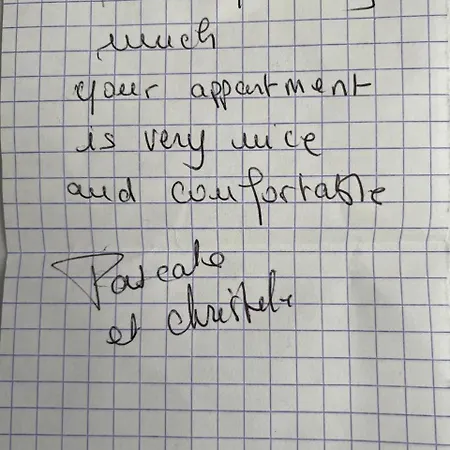 much
your appartment
is very nice
and comfortable
Pascale
et christele